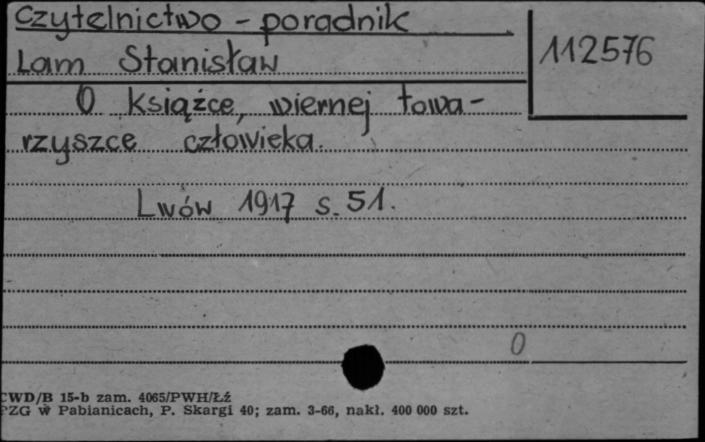 Czytelnictwo - poradnik
112576
Lam Stanisław
O książce, wiernej towa-
rzyszce człowieka.
Lwów 1917 s. 51.
0
CWD/B 15-b zam. 4065/PWH/Łź
PZG w Pabianicach, P. Skargi 40; zam. 3-66, nakł. 400 000 szt.